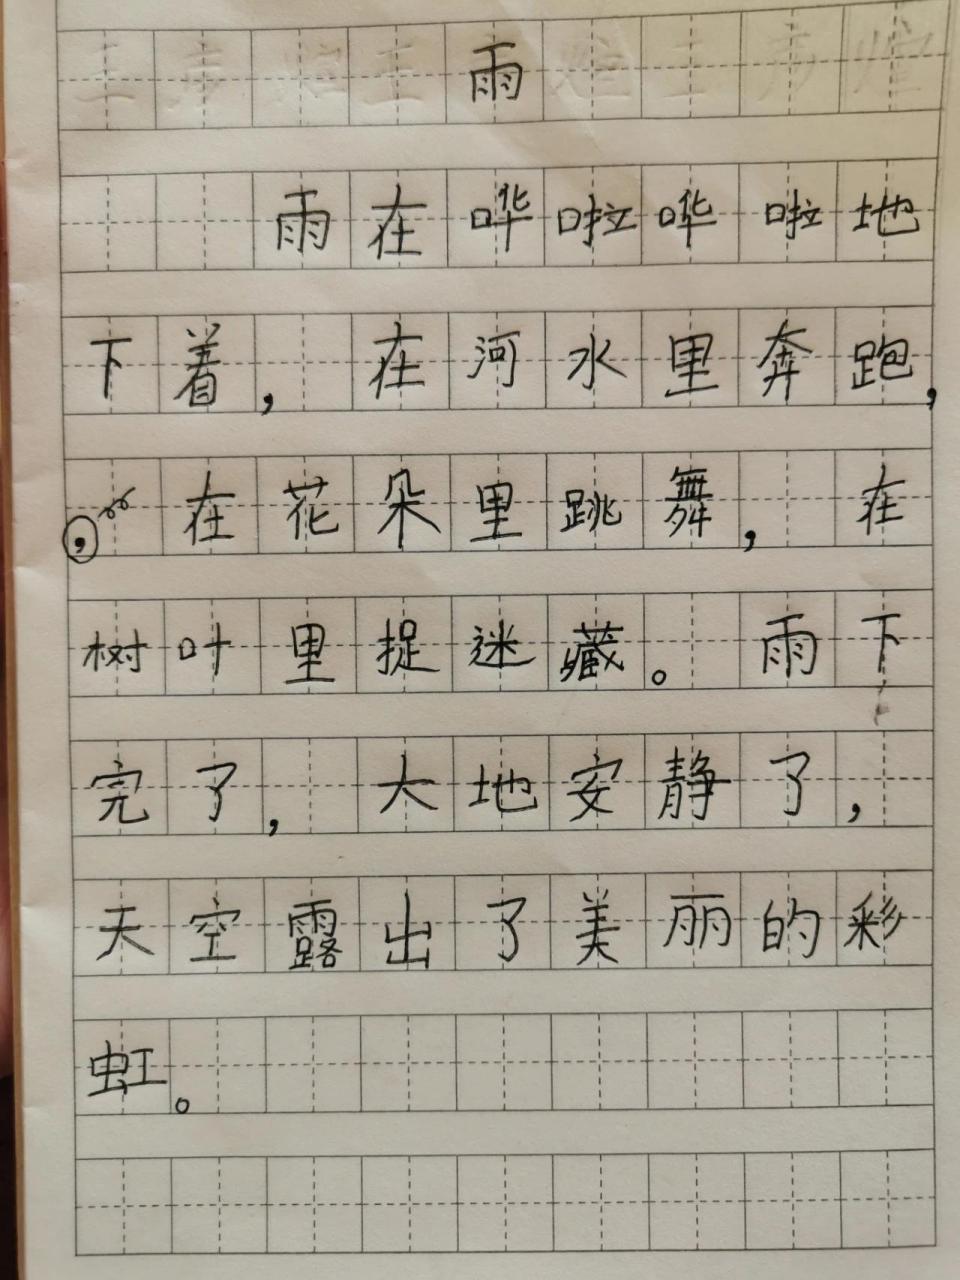 雨
雨在哗啦哗啦地
下着，在河水里奔跑，
在花朵里跳舞，在
树叶里捉迷藏。雨下
完了，大地安静了，
天空露出了美丽的彩
虹。